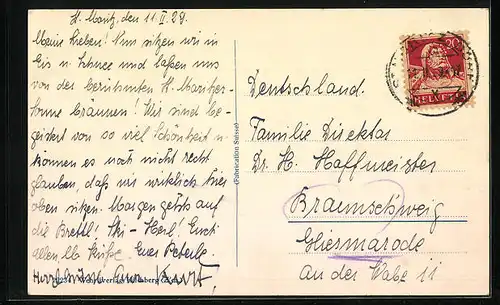 St. Moritz, den 11.II.29.
Meine Lieben! Nun sitzen wir in
Eis u. Schnee und laßen uns
von der berühmten St. Moritzer-
sonne bräunen! Wir sind be-
geistert von so viel Schönheit u.
können es noch nicht recht
glauben, daß wir wirklich hier
oben sitzen. Morgen gehts auf
die Brettl! Ski-Heil! Euch
allen lb. Grüße. Eure Peterle.
Herzl. Grüße Euer Kurt,
(Fabrication Suisse)
HELVETIA
20
Deutschland.
Familie Direktor
Dr. H. Hoffmeister
Braunschweig
Gliesmarode
An der Wabe 11